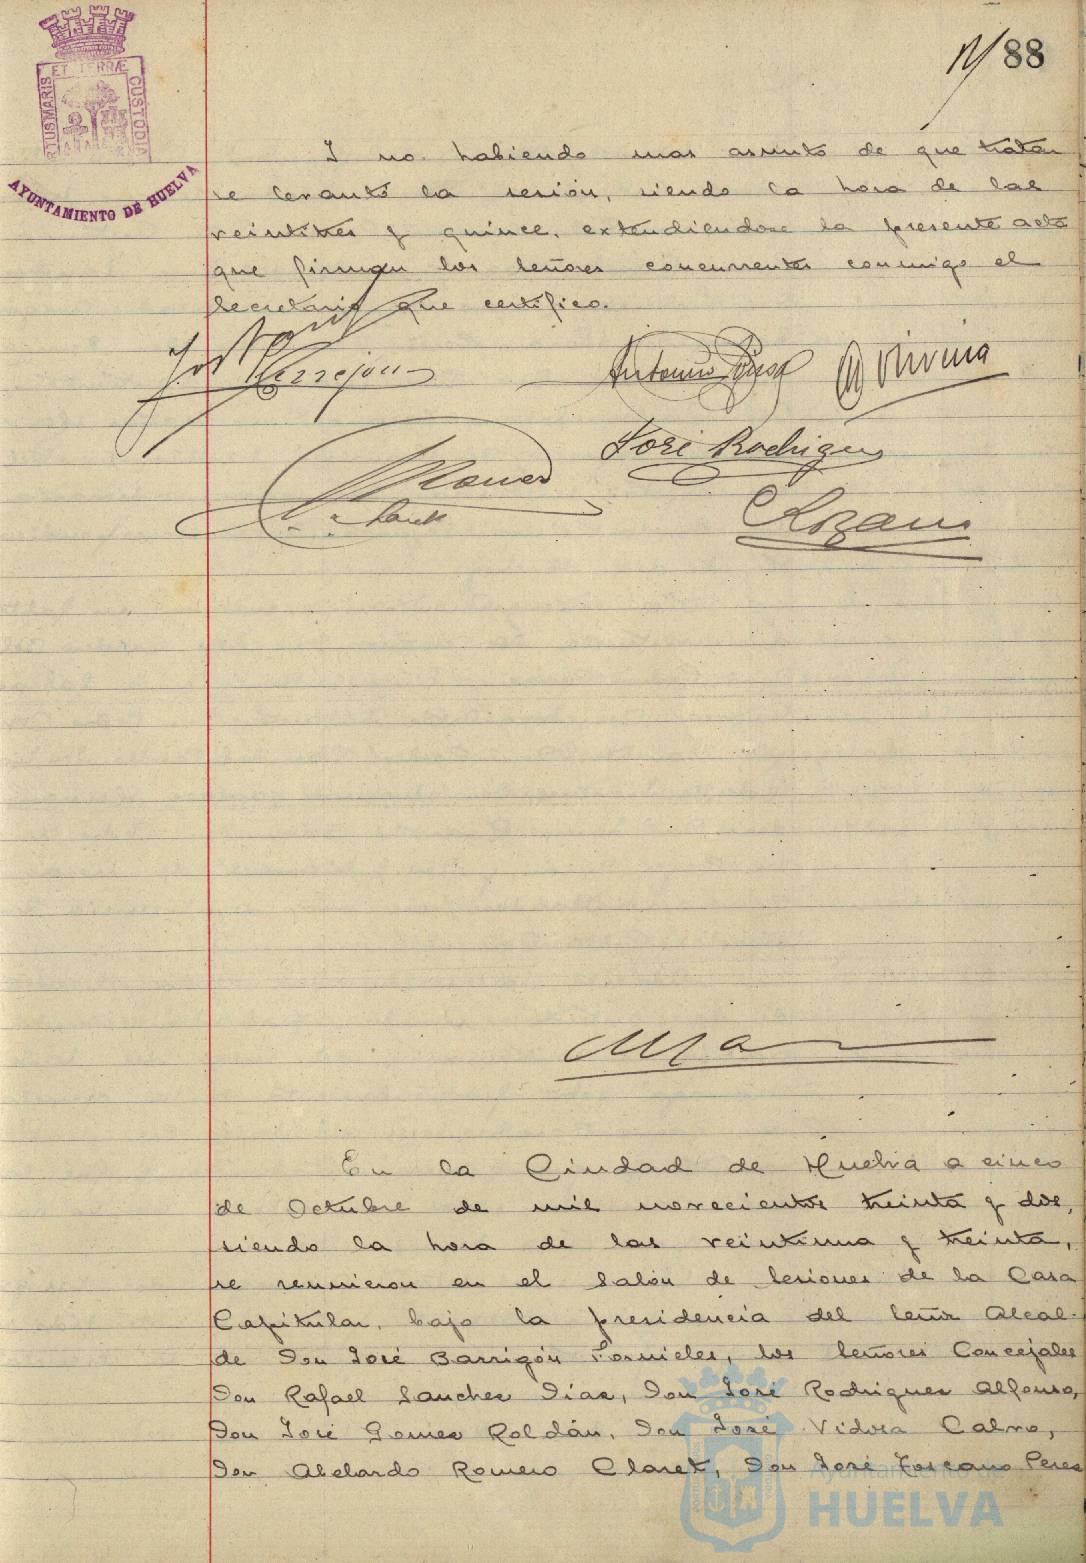 88
ET TERRÆ
PORTUS MARIS
CUSTODIA
AYUNTAMIENTO DE HUELVA
I no habiendo mas asunto de que tratar
se levantó la sesión, siendo la hora de las
veintitres y quince, extendiendose la presente acta
que firman los señores concurrentes conmigo el
Secretario que certifico.
José Rodriguez
En la Ciudad de Huelva a cinco
de Octubre de mil novecientos treinta y dos,
siendo la hora de las veintiuna y treinta,
se reunieron en el Salón de Sesiones de la Casa
Capitular, bajo la presidencia del Señor Alcal-
de Don José Barrigón Fornieles, los Señores Concejales
Don Rafael Sanchez Diaz, Don José Rodriguez Alfonso,
Don José Gomez Roldán, Don José Vidosa Calvo,
Don Abelardo Romero Claret, Don José Toscano Perez
Ayuntamiento de
HUELVA